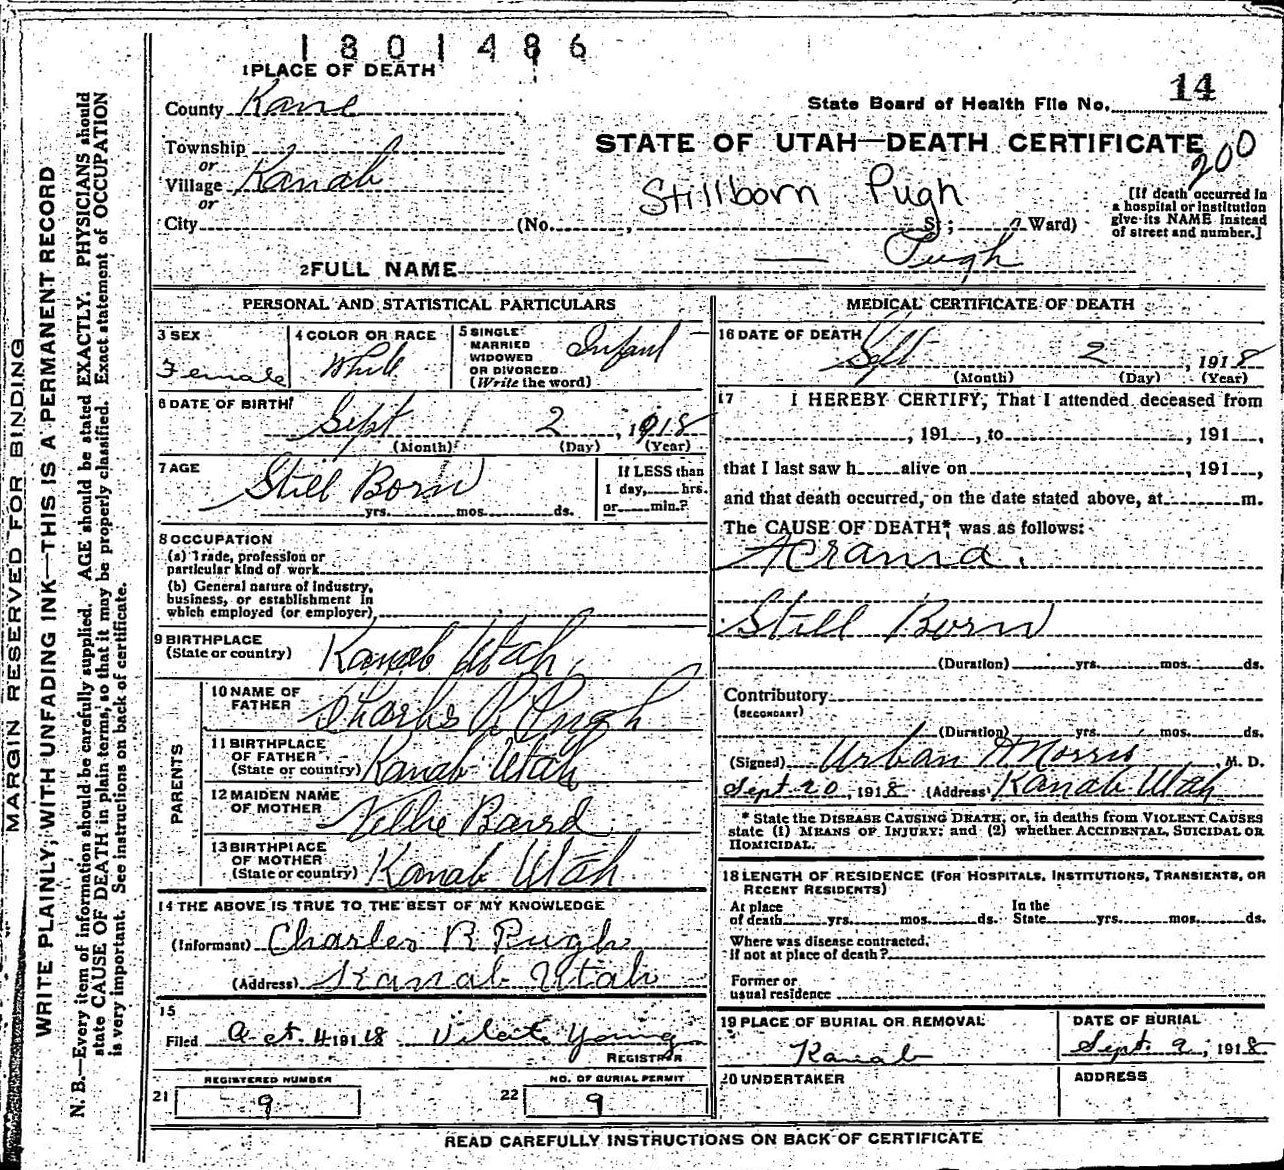 1801486
1 PLACE OF DEATH
County Kane
State Board of Health File No. 14
Township
STATE OF UTAH—DEATH CERTIFICATE
200
or
Village Kanab
Stillborn Pugh
[If death occurred in
a hospital or institution
give its NAME instead
of street and number.]
or
City (No. , St; Ward)
2 FULL NAME — Pugh
PERSONAL AND STATISTICAL PARTICULARS
3 SEX
Female
4 COLOR OR RACE
White
5 SINGLE
MARRIED
WIDOWED
OR DIVORCED
(Write the word)
Infant
6 DATE OF BIRTH
Sept 2, 1918
(Month) (Day) (Year)
7 AGE
Still Born
yrs. mos. ds.
If LESS than
1 day, hrs.
or min.?
8 OCCUPATION
(a) Trade, profession or
particular kind of work
(b) General nature of industry,
business, or establishment in
which employed (or employer)
9 BIRTHPLACE
(State or country)
Kanab Utah
PARENTS
10 NAME OF
FATHER
Charles R Pugh
11 BIRTHPLACE
OF FATHER
(State or country)
Kanab Utah
12 MAIDEN NAME
OF MOTHER
13 BIRTHPLACE
OF MOTHER
(State or country)
Kanab Utah
14 THE ABOVE IS TRUE TO THE BEST OF MY KNOWLEDGE
(Informant) Charles R Pugh
(Address) Kanab Utah
15
Filed Oct. 4 1918 Young
REGISTRAR
REGISTERED NUMBER
21 9
NO. OF BURIAL PERMIT
22 9
MEDICAL CERTIFICATE OF DEATH
16 DATE OF DEATH
Sept 2, 1918
(Month) (Day) (Year)
17 I HEREBY CERTIFY, That I attended deceased from
, 191 , to , 191 ,
that I last saw h alive on , 191 ,
and that death occurred, on the date stated above, at m.
The CAUSE OF DEATH* was as follows:
Acrania.
Still Born
(Duration) yrs. mos. ds.
Contributory
(SECONDARY)
(Duration) yrs. mos. ds.
(Signed) Urban Morris, M. D.
Sept 20, 1918 (Address) Kanab Utah
* State the DISEASE CAUSING DEATH, or, in deaths from VIOLENT CAUSES
state (1) MEANS OF INJURY; and (2) whether ACCIDENTAL, SUICIDAL OR
HOMICIDAL.
18 LENGTH OF RESIDENCE (FOR HOSPITALS, INSTITUTIONS, TRANSIENTS, OR
RECENT RESIDENTS)
At place
of death yrs. mos. ds.
In the
State yrs. mos. ds.
Where was disease contracted,
if not at place of death?
Former or
usual residence
19 PLACE OF BURIAL OR REMOVAL
Kanab
DATE OF BURIAL
Sept. 9, 1918
20 UNDERTAKER
ADDRESS
READ CAREFULLY INSTRUCTIONS ON BACK OF CERTIFICATE
MARGIN RESERVED FOR BINDING
WRITE PLAINLY, WITH UNFADING INK—THIS IS A PERMANENT RECORD
N. B.—Every item of information should be carefully supplied. AGE should be stated EXACTLY. PHYSICIANS should
state CAUSE OF DEATH in plain terms, so that it may be properly classified. Exact statement of OCCUPATION
is very important. See instructions on back of certificate.